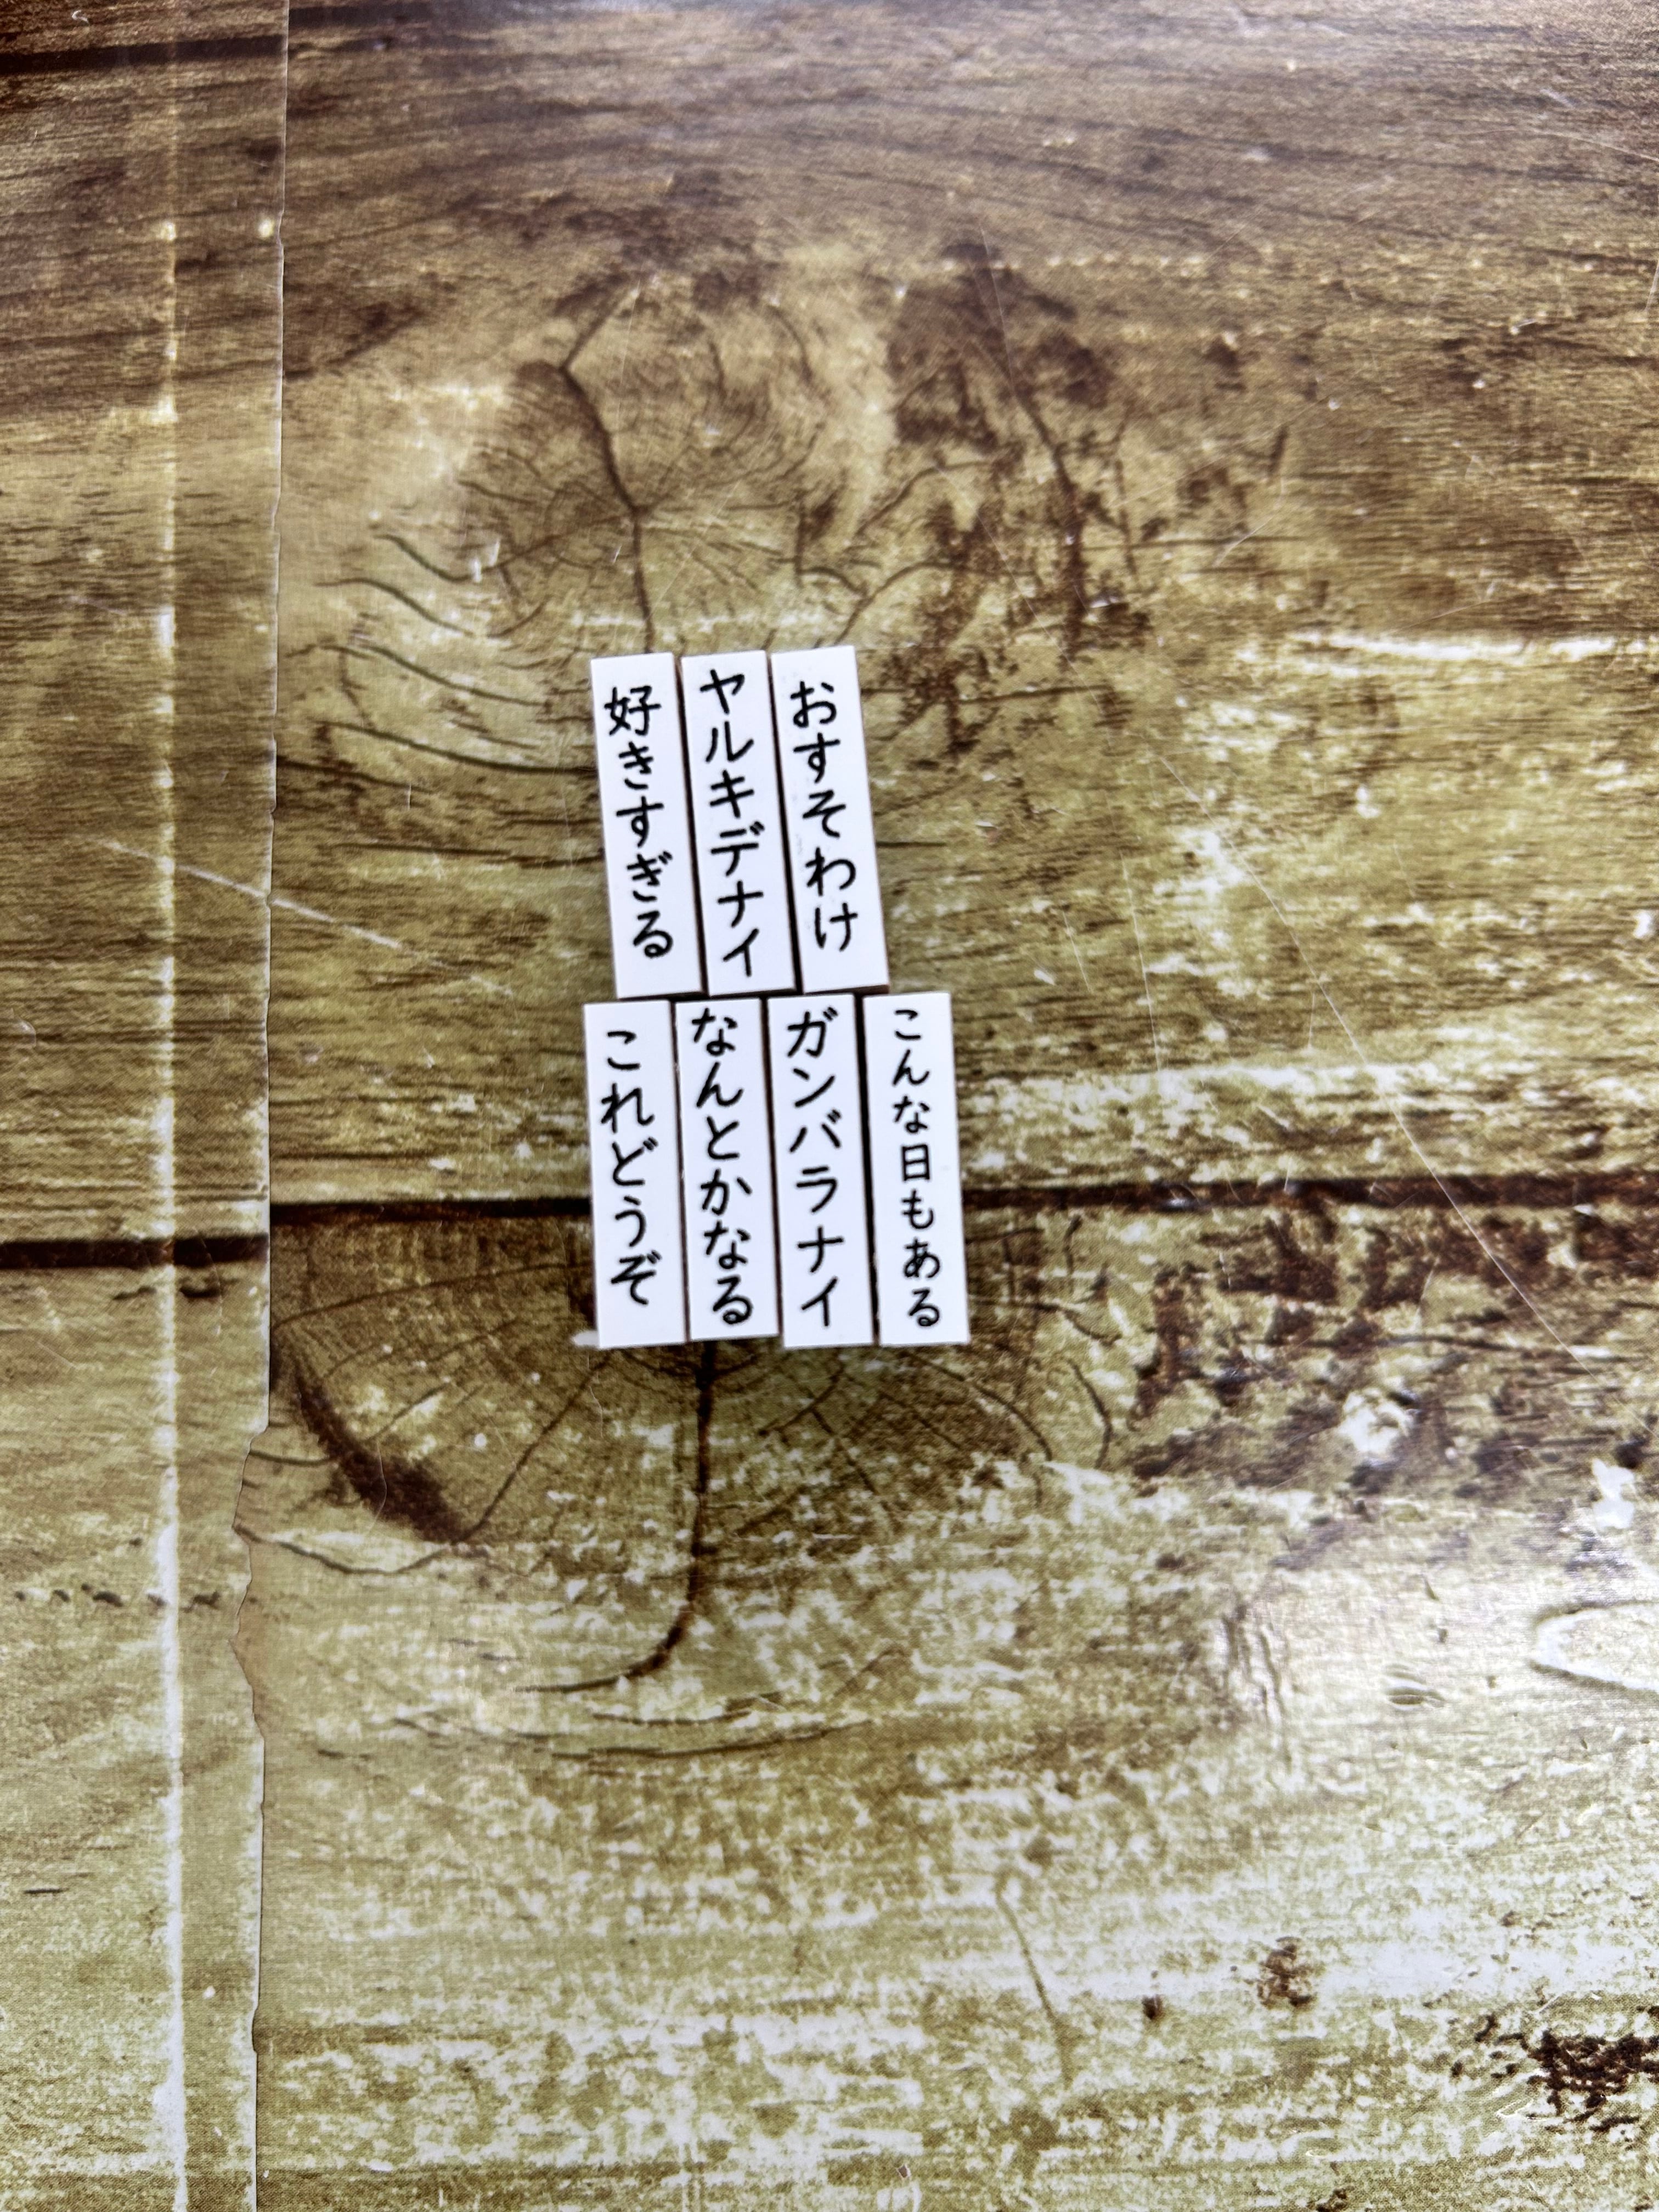 おすそわけ
ヤルキデナイ
好きすぎる
こんな日もある
ガンバラナイ
なんとかなる
これどうぞ